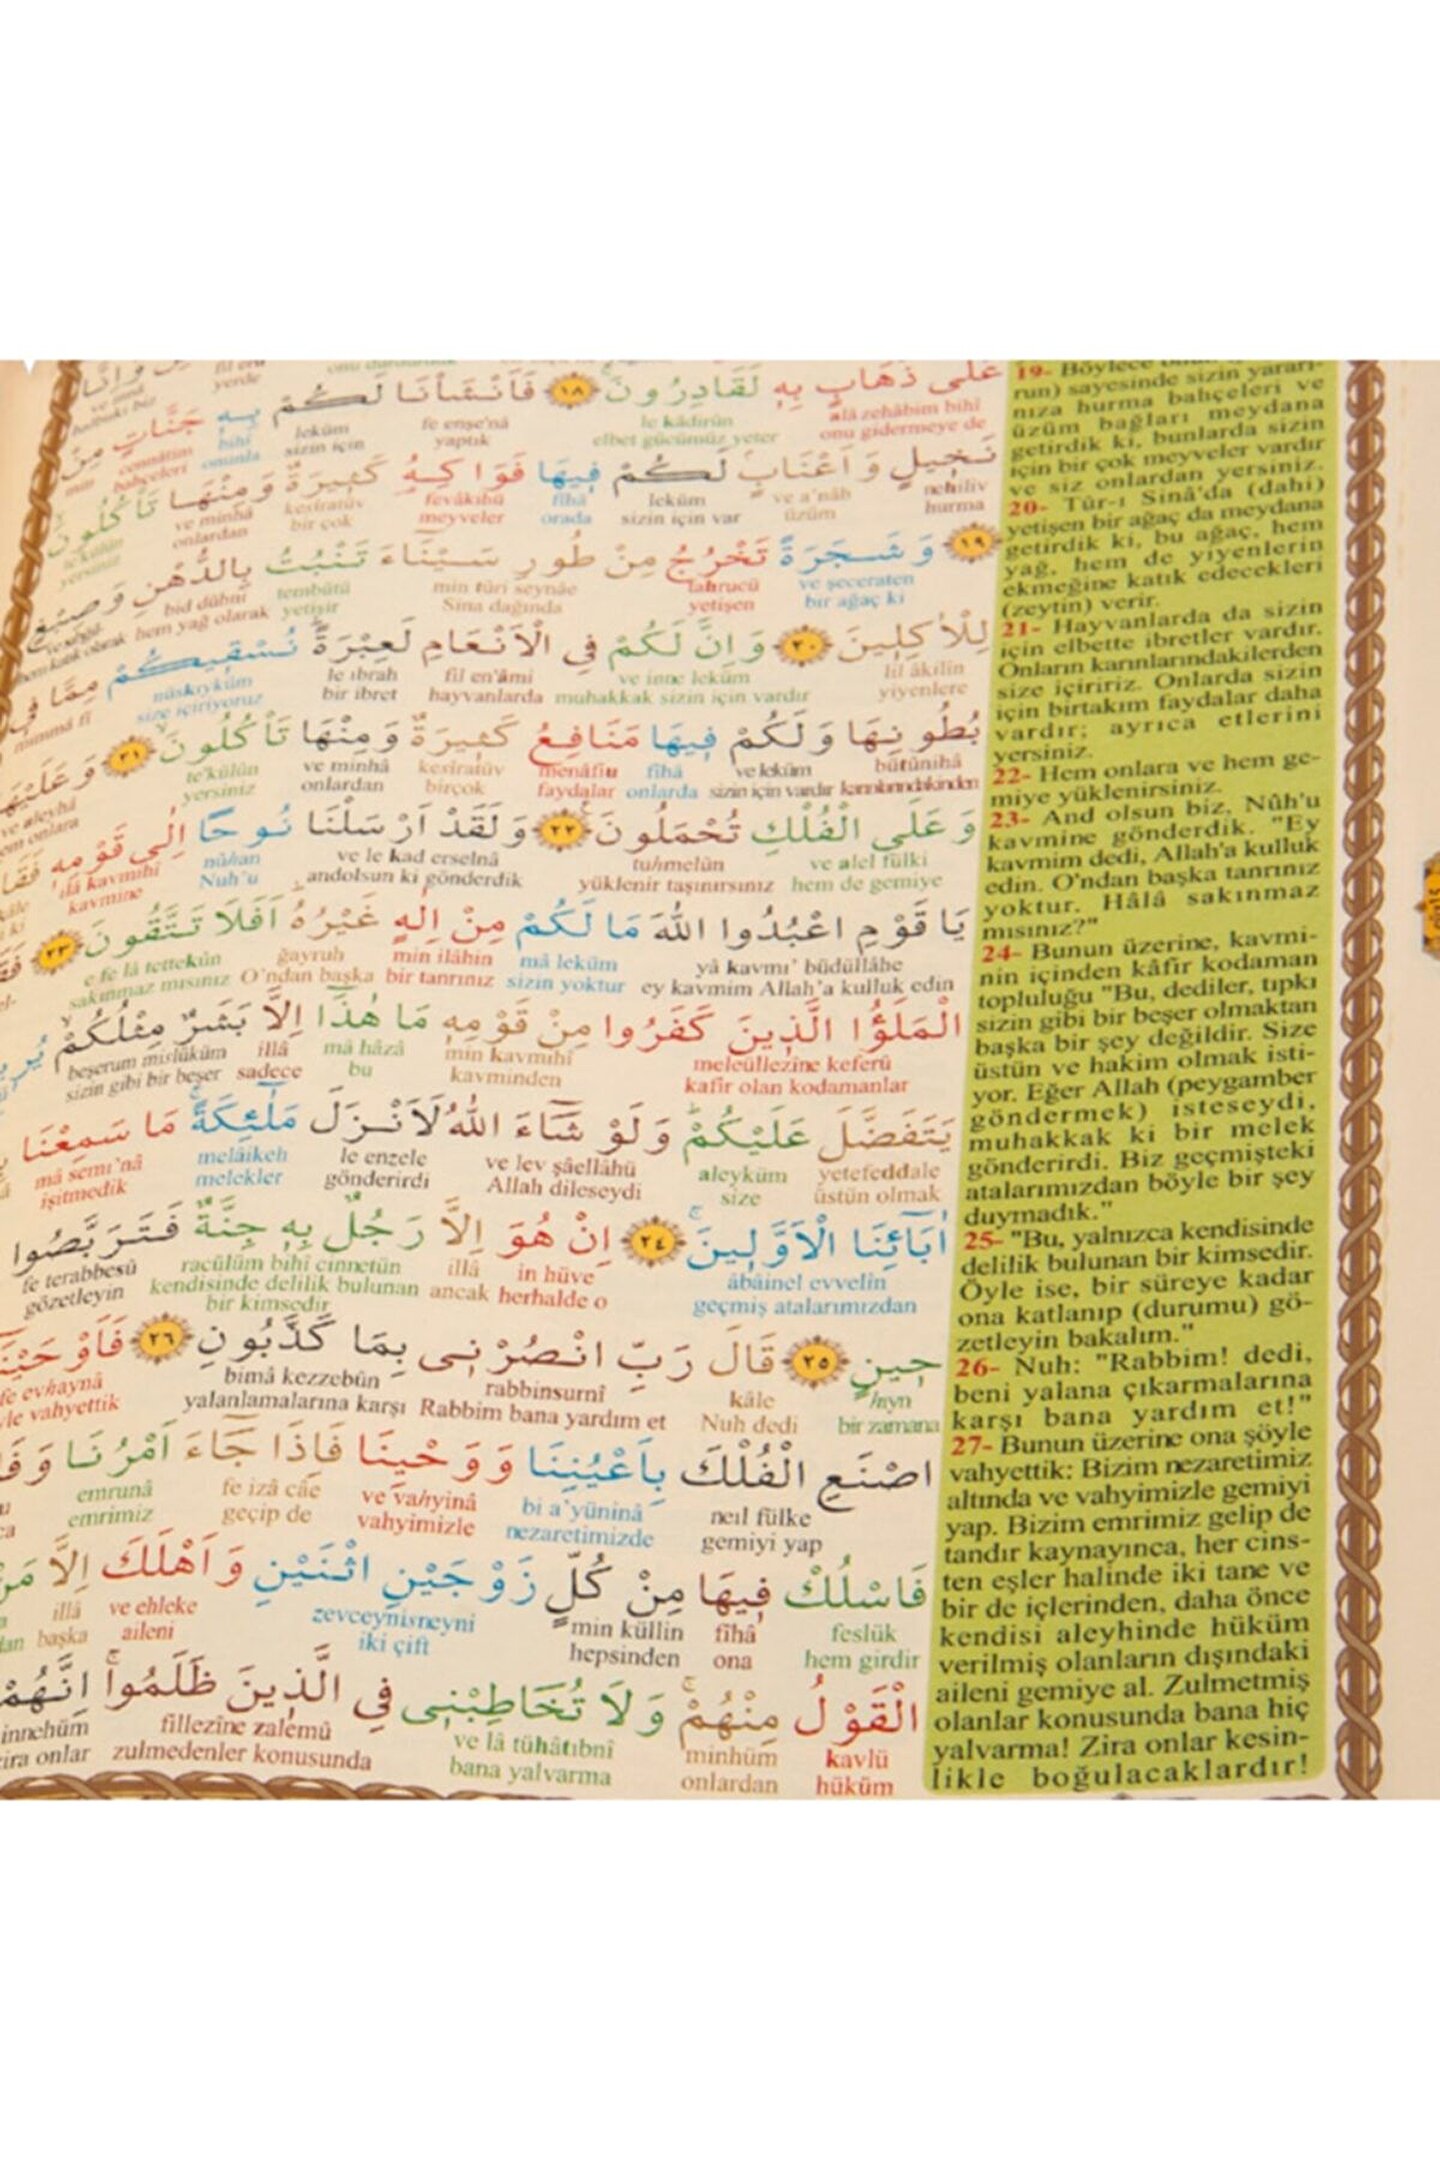 عَلٰى ذَهَابٍ بِهٖ لَقَادِرُونَ ﴿١٨﴾ فَاَنْشَأْنَا لَكُمْ بِهٖ جَنَّاتٍ مِنْ
alâ zehâbim bihî le kâdirûn fe enşe'nâ leküm bihî cennâtim min
onu gidermeye de elbet gücümüz yeter yaptık sizin için onunla bahçeleri
نَخٖيلٍ وَاَعْنَابٍ لَكُمْ فٖيهَا فَوَاكِهُ كَثٖيرَةٌ وَمِنْهَا تَأْكُلُونَ
nehîliv ve a'nâb leküm fîhâ fevâkihü kesîratüv ve minhâ te'külûn
hurma üzüm sizin için var orada meyveler bir çok onlardan yersiniz
﴿١٩﴾ وَشَجَرَةً تَخْرُجُ مِنْ طُورِ سَيْنَٓاءَ تَنْبُتُ بِالدُّهْنِ وَصِبْغٍ
ve şeceraten tahrucü min tûri seynâe tembütü bid dühni ve sıbğıl
bir ağaç ki yetişen Sina dağında yetişir hem yağ olarak hem katık olarak
لِلْاٰكِلٖينَ ﴿٢٠﴾ وَاِنَّ لَكُمْ فِي الْاَنْعَامِ لَعِبْرَةً نُسْقٖيكُمْ مِمَّا فٖي
lil âkilîn ve inne leküm fil en'âmi le ıbrah nüskıyküm mimmâ fî
yiyenlere muhakkak sizin için vardır hayvanlarda bir ibret size içiriyoruz
بُطُونِهَا وَلَكُمْ فٖيهَا مَنَافِعُ كَثٖيرَةٌ وَمِنْهَا تَأْكُلُونَ ﴿٢١﴾ وَعَلَيْهَا
bütûnihâ ve leküm fîhâ menâfiu kesîratüv ve minhâ te'külûn ve aleyhâ
karınlarındakinden sizin için vardır onlarda faydalar birçok onlardan yersiniz
وَعَلَى الْفُلْكِ تُحْمَلُونَ ﴿٢٢﴾ وَلَقَدْ اَرْسَلْنَا نُوحًا اِلٰى قَوْمِهٖ
ve alel fülki tuhmelûn ve le kad erselnâ nûhan ilâ kavmihî
hem de gemiye yüklenir taşınırsınız andolsun ki gönderdik Nuh'u kavmine
يَا قَوْمِ اعْبُدُوا اللّٰهَ مَا لَكُمْ مِنْ اِلٰهٍ غَيْرُهُ اَفَلَا تَتَّقُونَ ﴿٢٣﴾
yâ kavmı' büdüllâhe mâ leküm min ilâhin ğayruh e fe lâ tettekûn
ey kavmim Allah'a kulluk edin sizin yoktur bir tanrınız O'ndan başka sakınmaz mısınız
الْمَلَؤُا الَّذٖينَ كَفَرُوا مِنْ قَوْمِهٖ مَا هٰذَٓا اِلَّا بَشَرٌ مِثْلُكُمْ
meleüllezîne keferû min kavmihî mâ hâzâ illâ beşerum mislüküm
kafir olan kodamanlar kavminden bu sadece sizin gibi bir beşer
يَتَفَضَّلَ عَلَيْكُمْ وَلَوْ شَٓاءَ اللّٰهُ لَاَنْزَلَ مَلٰٓئِكَةً مَا سَمِعْنَا
yetefeddale aleyküm ve lev şâellâhü le enzele melâikeh mâ semi'nâ
üstün olmak size Allah dileseydi gönderirdi melekler işitmedik
اٰبَٓائِنَا الْاَوَّلٖينَ ﴿٢٤﴾ اِنْ هُوَ اِلَّا رَجُلٌ بِهٖ جِنَّةٌ فَتَرَبَّصُوا
âbâinel evvelîn in hüve illâ racülüm bihî cinnetün fe terabbesû
geçmiş atalarımızdan herhalde o ancak kendisinde delilik bulunan gözetleyin
bir kimsedir
حٖينٍ ﴿٢٥﴾ قَالَ رَبِّ انْصُرْنٖي بِمَا كَذَّبُونِ ﴿٢٦﴾ فَاَوْحَيْنَا
hıyn kâle rabbinsurnî bimâ kezzebûn fe evhaynâ
bir zamana Nuh dedi Rabbim bana yardım et yalanlamalarına karşı vahyettik
اصْنَعِ الْفُلْكَ بِاَعْيُنِنَا وَوَحْيِنَا فَاِذَا جَٓاءَ اَمْرُنَا
neıl fülke bi a'yüninâ ve vahyinâ fe izâ câe emrunâ
gemiyi yap nezaretimizde vahyimizle geçip de emrimiz
فَاسْلُكْ فٖيهَا مِنْ كُلٍّ زَوْجَيْنِ اثْنَيْنِ وَاَهْلَكَ اِلَّا
feslük fîhâ min küllin zevceynisneyni ve ehleke illâ
hem girdir ona hepsinden iki çift aileni başka
الْقَوْلُ مِنْهُمْ وَلَا تُخَاطِبْنٖي فِي الَّذٖينَ ظَلَمُوا اِنَّهُمْ
kavlü minhüm ve lâ tühâtıbnî fillezîne zalemû innehüm
hüküm onlardan bana yalvarma zulmedenler konusunda zira onlar
19- Böylece
run) sayesinde sizin yararı-
nıza hurma bahçeleri ve
üzüm bağları meydana
getirdik ki, bunlarda sizin
için bir çok meyveler vardır
ve siz onlardan yersiniz.
20- Tûr-ı Sinâ'da (dahi)
yetişen bir ağaç da meydana
getirdik ki, bu ağaç, hem
yağ, hem de yiyenlerin
ekmeğine katık edecekleri
(zeytin) verir.
21- Hayvanlarda da sizin
için elbette ibretler vardır.
Onların karınlarındakilerden
size içiririz. Onlarda sizin
için birtakım faydalar daha
vardır; ayrıca etlerini
yersiniz.
22- Hem onlara ve hem ge-
miye yüklenirsiniz.
23- And olsun biz, Nûh'u
kavmine gönderdik. "Ey
kavmim dedi, Allah'a kulluk
edin. O'ndan başka tanrınız
yoktur. Hâlâ sakınmaz
mısınız?"
24- Bunun üzerine, kavmi-
nin içinden kâfir kodaman
topluluğu "Bu, dediler, tıpkı
sizin gibi bir beşer olmaktan
başka bir şey değildir. Size
üstün ve hakim olmak isti-
yor. Eğer Allah (peygamber
göndermek) isteseydi,
muhakkak ki bir melek
gönderirdi. Biz geçmişteki
atalarımızdan böyle bir şey
duymadık."
25- "Bu, yalnızca kendisinde
delilik bulunan bir kimsedir.
Öyle ise, bir süreye kadar
ona katlanıp (durumu) gö-
zetleyin bakalım."
26- Nuh: "Rabbim! dedi,
beni yalana çıkarmalarına
karşı bana yardım et!"
27- Bunun üzerine ona şöyle
vahyettik: Bizim nezaretimiz
altında ve vahyimizle gemiyi
yap. Bizim emrimiz gelip de
tandır kaynayınca, her cins-
ten eşler halinde iki tane ve
bir de içlerinden, daha önce
kendisi aleyhinde hüküm
verilmiş olanların dışındaki
aileni gemiye al. Zulmetmiş
olanlar konusunda bana hiç
yalvarma! Zira onlar kesin-
likle boğulacaklardır!